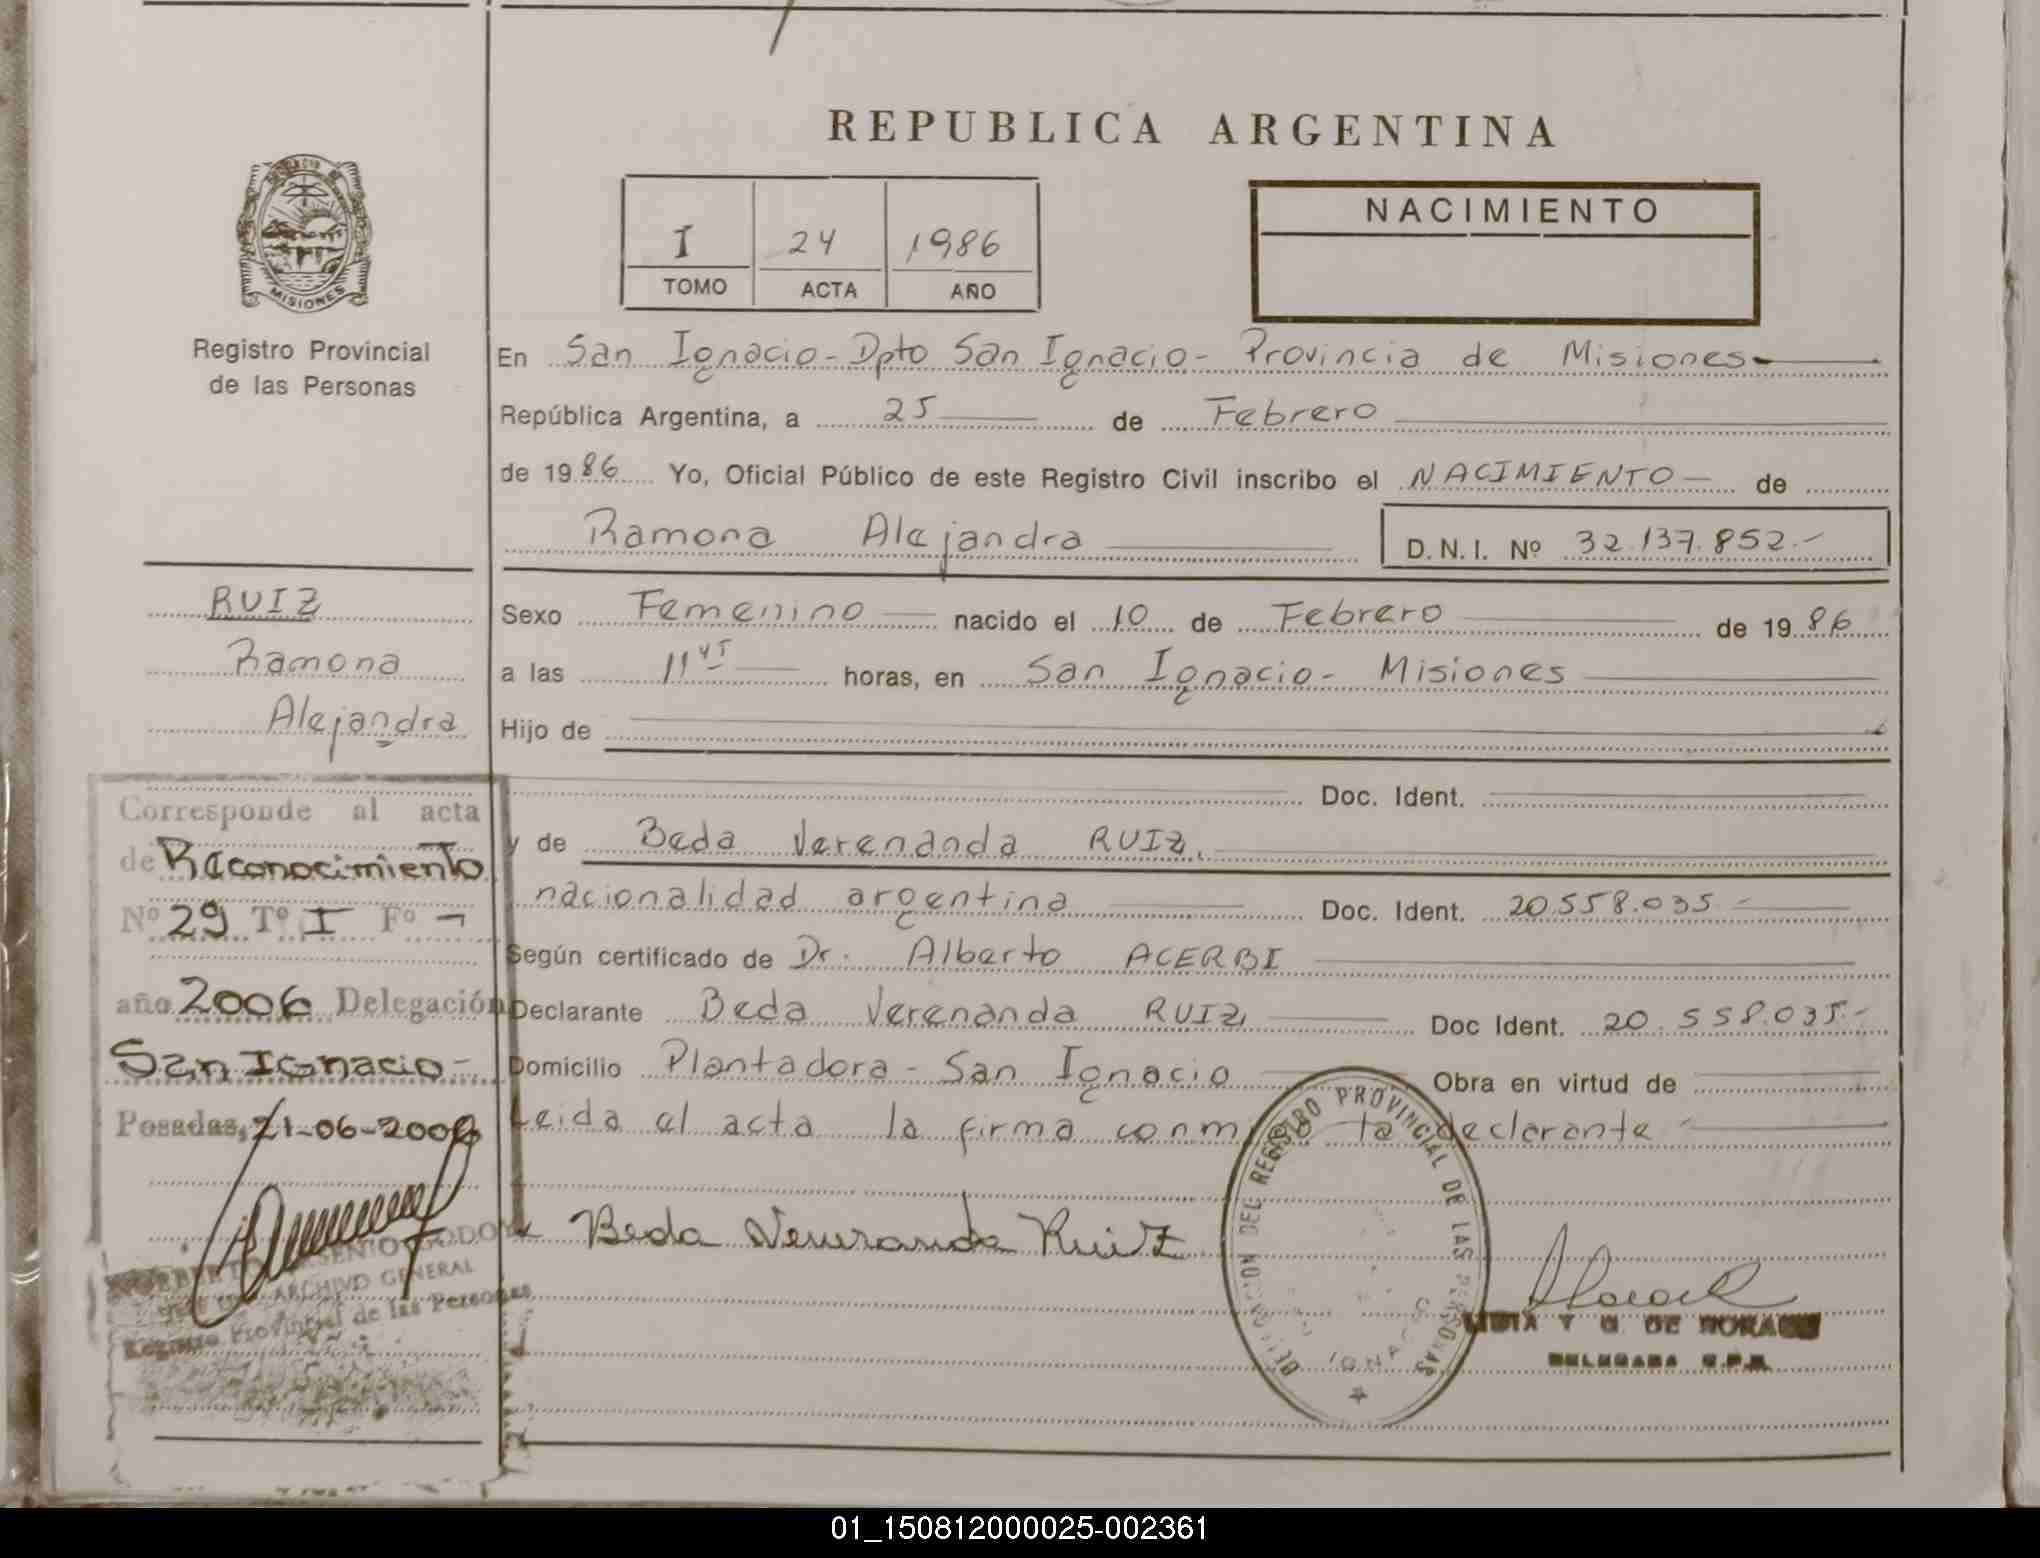 REPUBLICA ARGENTINA
MISIONES
Registro Provincial
de las Personas
I 24 1986
TOMO ACTA AÑO
NACIMIENTO
En San Ignacio - Dpto San Ignacio - Provincia de Misiones
República Argentina, a 25 de Febrero
de 1986 Yo, Oficial Público de este Registro Civil inscribo el NACIMIENTO de
Ramona Alejandra D.N.I. Nº 32.137.852.-
RUIZ
Ramona
Alejandra
Sexo Femenino nacido el 10 de Febrero de 1986
a las 11 45 horas, en San Ignacio - Misiones
Hijo de
Doc. Ident.
y de Beda Verenanda RUIZ,
nacionalidad argentina Doc. Ident. 20.558.035.-
Según certificado de Dr. Alberto ACERBI
Declarante Beda Verenanda RUIZ, Doc Ident. 20.558.035.-
Domicilio Plantadora - San Ignacio Obra en virtud de
Leida el acta la firma conmigo la declarante
Corresponde al acta
de Reconocimiento
Nº 29 Tº I Fº -
año 2006 Delegación
San Ignacio -
Posadas, 21-06-2006
Beda Venuranda Ruiz
ARSENIO GODOY
ARCHIVO GENERAL
Registro Provincial de las Personas
DELEGACION DEL REGISTRO PROVINCIAL DE LAS PERSONAS
IGNACIO
DELEGADA
01_150812000025-002361